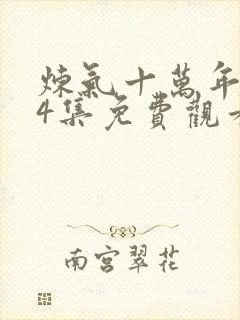 煉氣十萬年
4集免費觀
南宮翠花